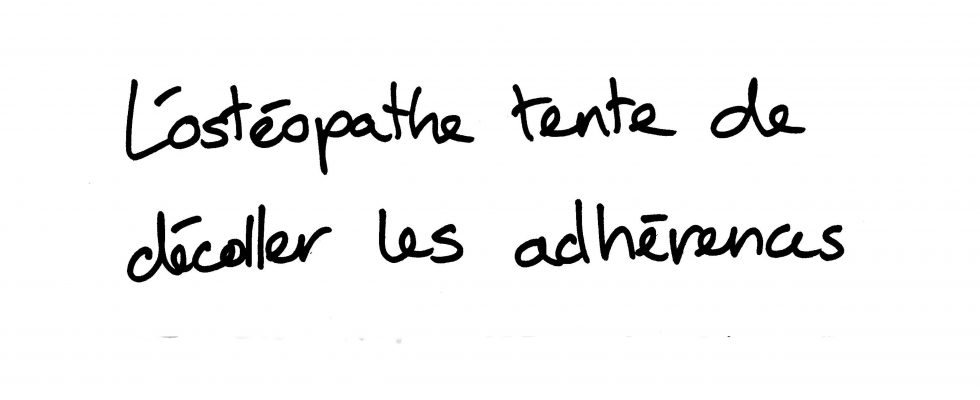 L'ostéopathe tente de
décoller les adhérences